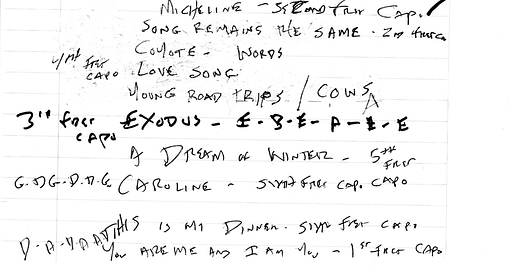 MICHELINE - SECOND FRET CAPO.
SONG REMAINS THE SAME. 2nd FRET CA
COYOTE - WORDS
FRET CAPO LOVE SONG
YOUNG ROAD TRIPS / COWS A
3rd FRET CAPO EXODUS - E-B-E-A-E-E
A DREAM OF WINTER - 5th FRET
CAROLINE - SIXTH FRET CAPO. CAPO
THIS IS MY DINNER. SIXTH FRET CAPO
YOU ARE ME AND I AM YOU - 1st FRET CAPO